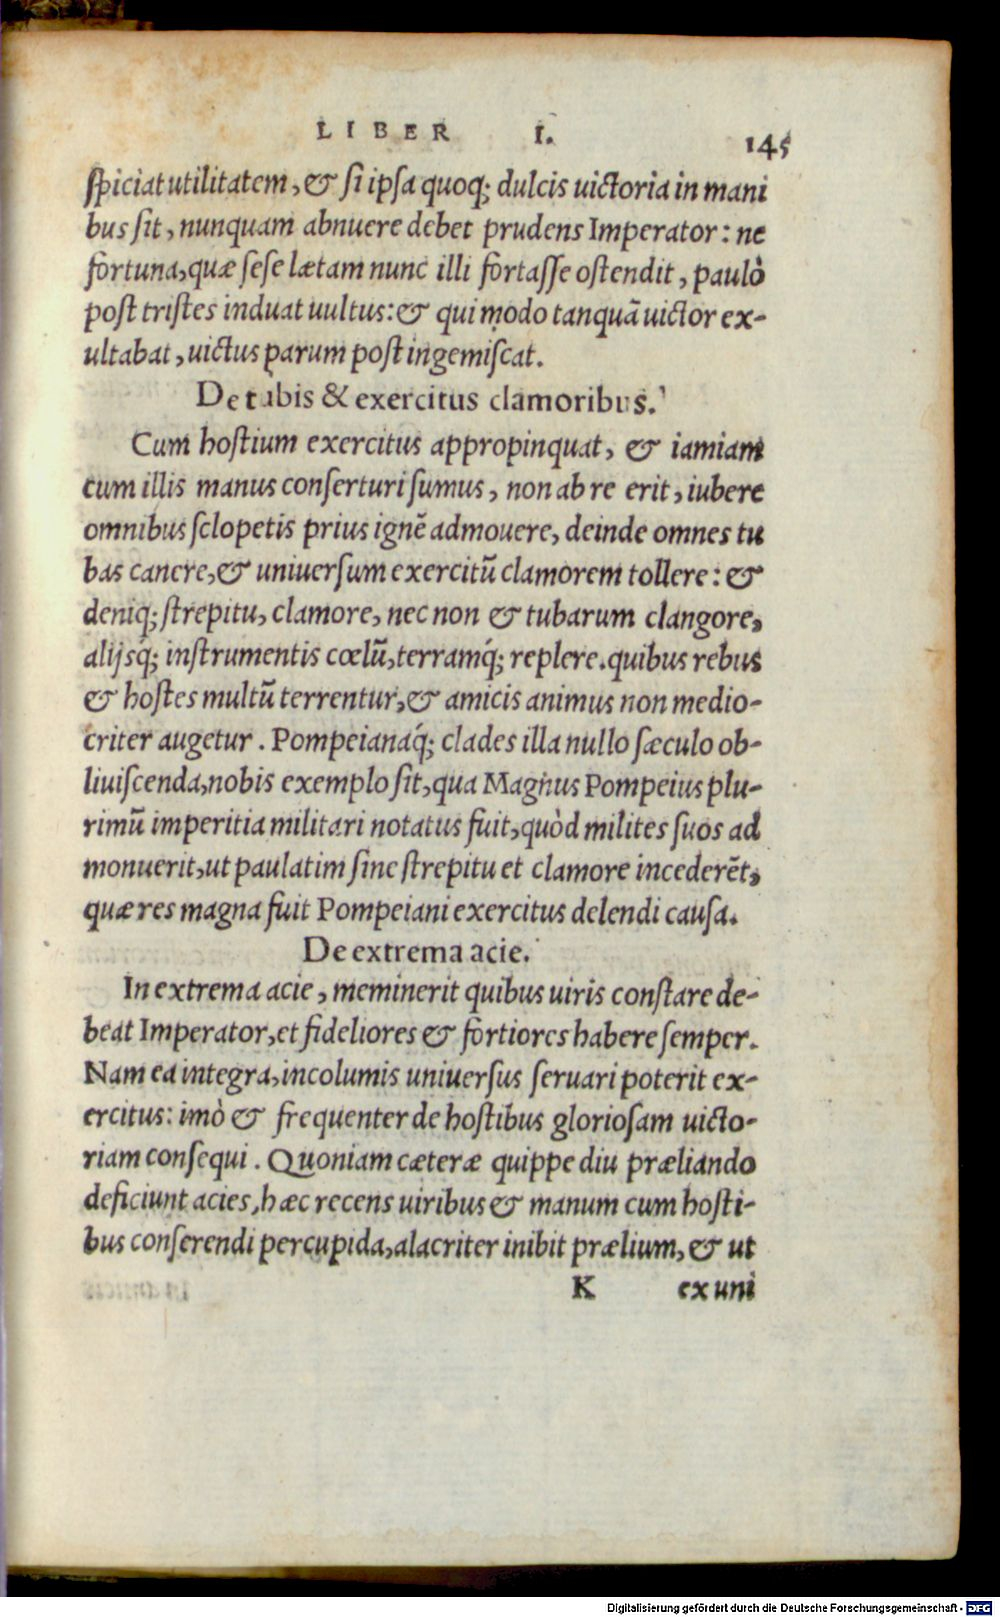 LIBER I. 145
ſpiciat utilitatem, & ſi ipſa quoq; dulcis uictoria in mani
bus ſit, nunquam abnuere debet prudens Imperator: ne
fortuna, quæ ſeſe lætam nunc illi fortaſſe oſtendit, paulò
poſt triſtes induat uultus: & qui modo tanquā uictor ex-
ultabat, uictus parum poſt ingemiſcat.
De tubis & exercitus clamoribus.
Cum hoſtium exercitus appropinquat, & iamiam
cum illis manus conſerturi ſumus, non ab re erit, iubere
omnibus ſclopetis prius ignē admouere, deinde omnes tu
bas canere, & uniuerſum exercitū clamorem tollere: &
deniq; ſtrepitu, clamore, nec non & tubarum clangore,
alijsq́; inſtrumentis cœlū, terramq́; replere. quibus rebus
& hoſtes multū terrentur, & amicis animus non medio-
criter augetur. Pompeianaq́; clades illa nullo ſæculo ob-
liuiſcenda, nobis exemplo ſit, qua Magnus Pompeius plu-
rimū imperitia militari notatus fuit, quòd milites ſuos ad
monuerit, ut paulatim ſine ſtrepitu et clamore incederēt,
quæ res magna fuit Pompeiani exercitus delendi cauſa.
De extrema acie.
In extrema acie, meminerit quibus uiris conſtare de-
beat Imperator, et fideliores & fortiores habere ſemper.
Nam ea integra, incolumis uniuerſus ſeruari poterit ex-
ercitus: imò & frequenter de hoſtibus glorioſam uicto-
riam conſequi. Quoniam cæteræ quippe diu præliando
deficiunt acies, hæc recens uiribus & manum cum hoſti-
bus conſerendi percupida, alacriter inibit prælium, & ut
K ex uni
Digitalisierung gefördert durch die Deutsche Forschungsgemeinschaft - DFG